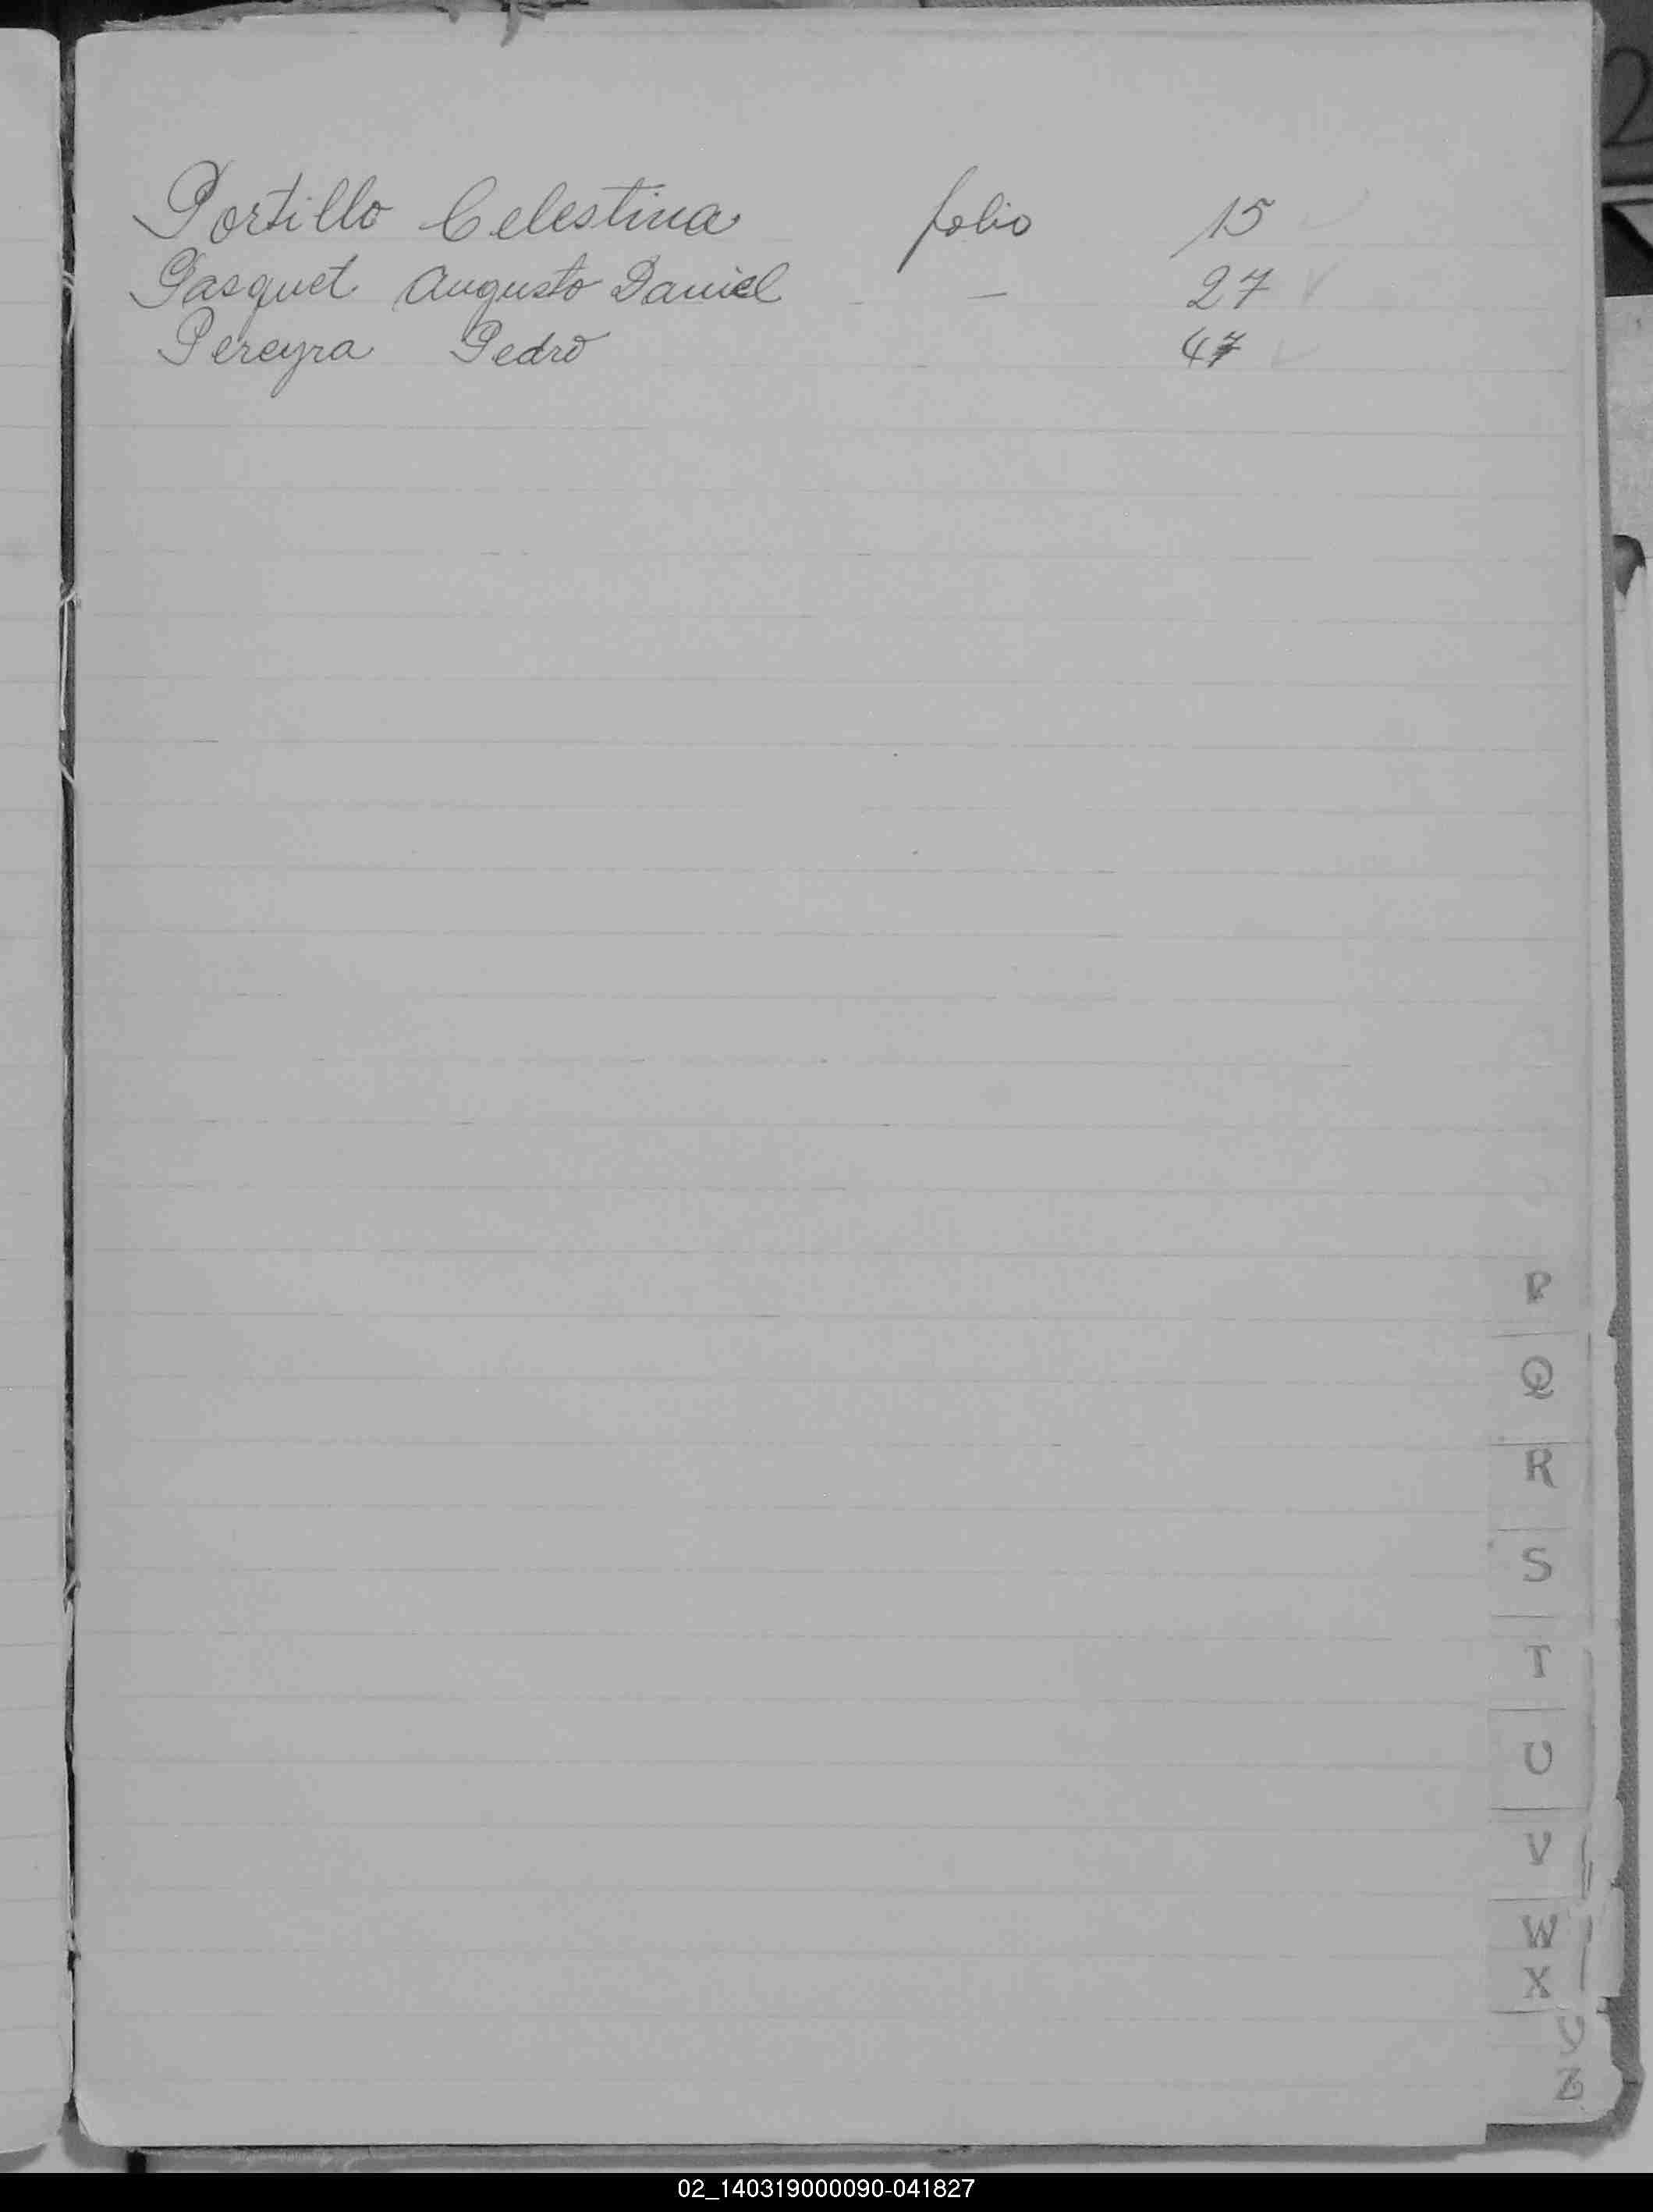 Portillo Celestina folio 15
Pasquet Augusto Daniel — 27
Pereyra Pedro 47
P
Q
R
S
T
U
V
W
X
Y
Z
02_140319000090-041827